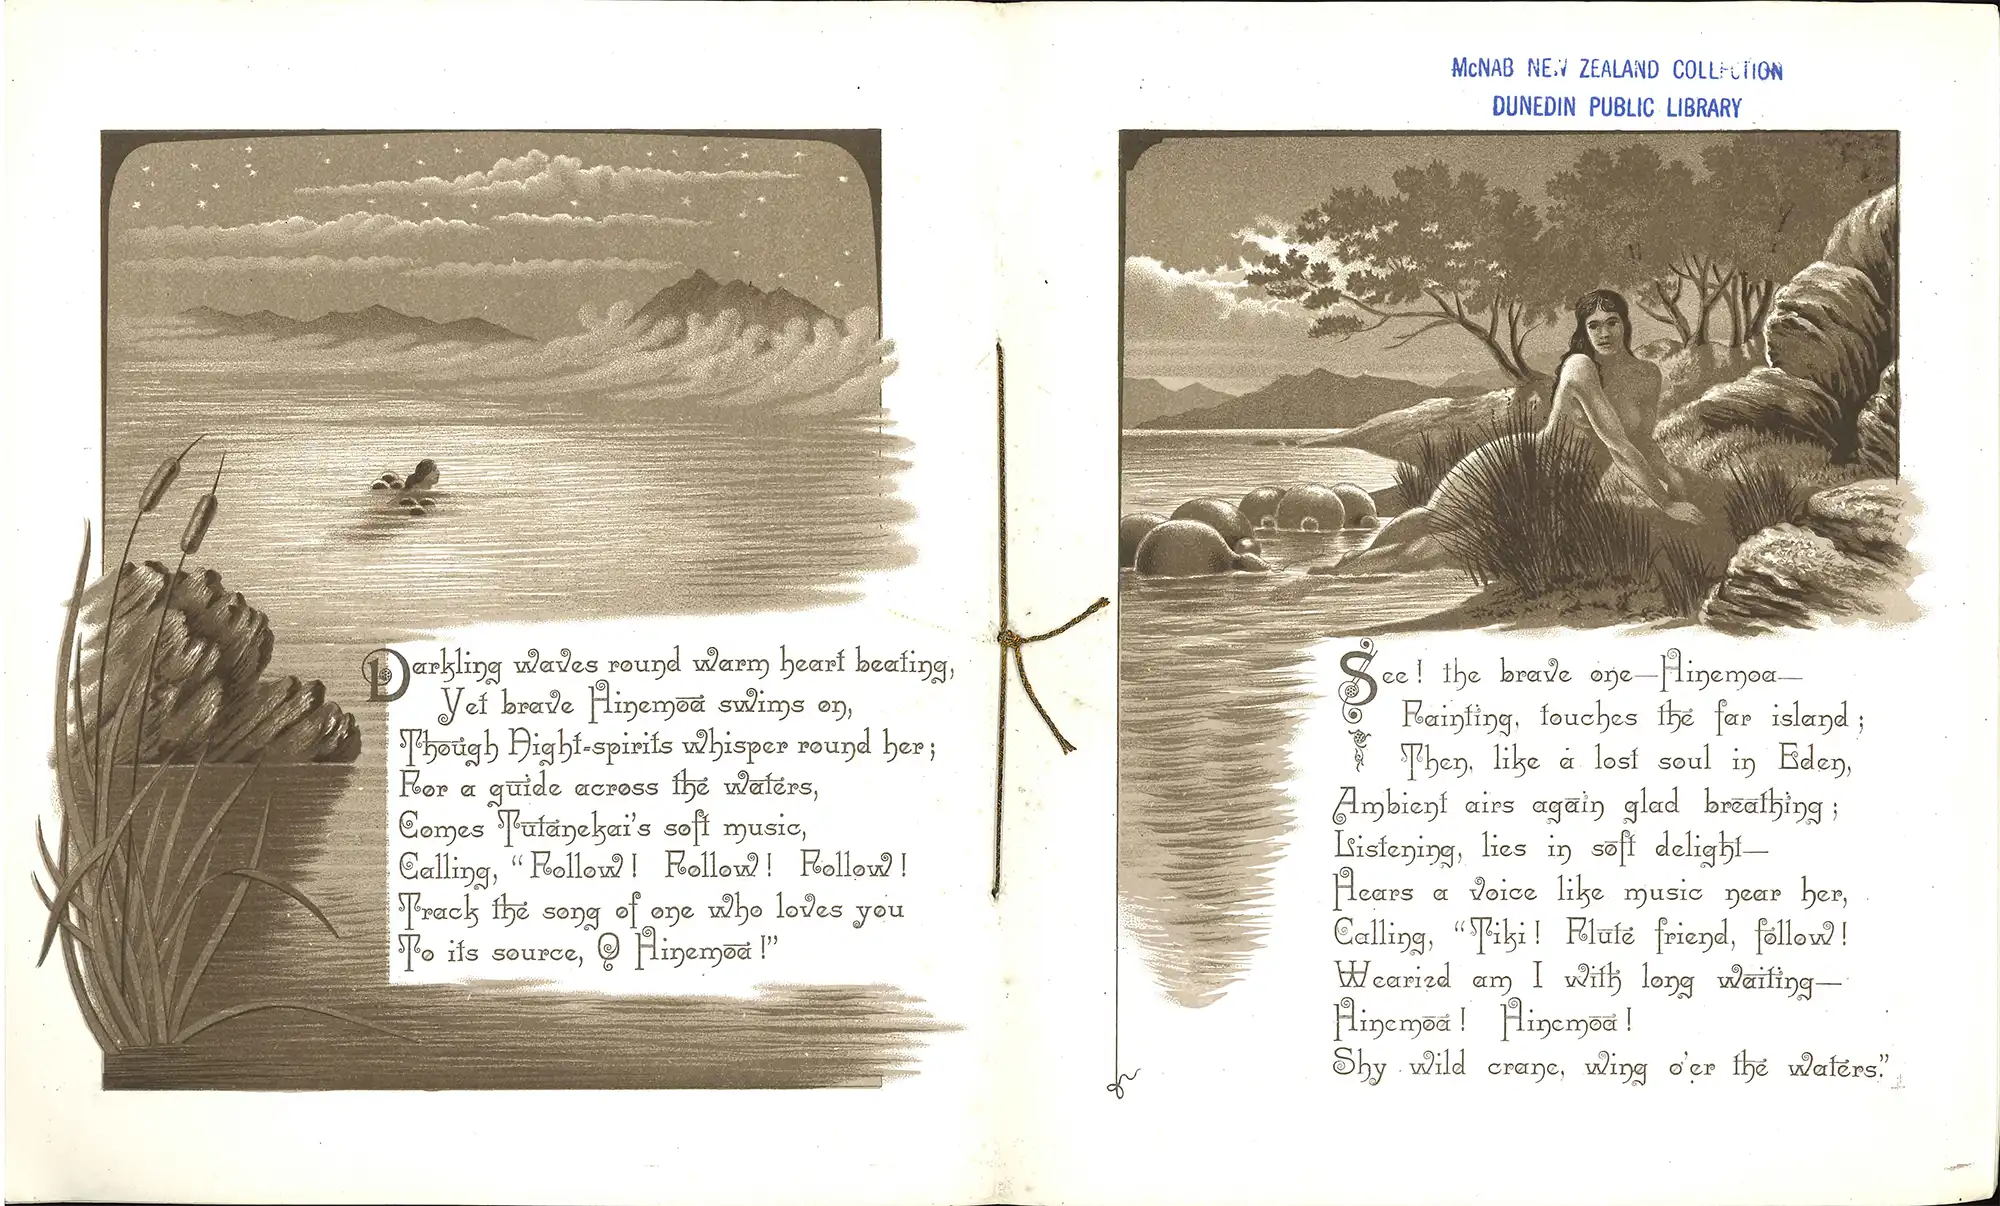 Darkling waves round warm heart beating,
Yet brave Hinemoa swims on,
Though Night-spirits whisper round her;
For a guide across the waters,
Comes Tutanekai's soft music,
Calling, "Follow! Follow! Follow!
Track the song of one who loves you
To its source, O Hinemoa!"
McNAB NEW ZEALAND COLLECTION
DUNEDIN PUBLIC LIBRARY
See! the brave one—Hinemoa—
Fainting, touches the far island;
Then, like a lost soul in Eden,
Ambient airs again glad breathing;
Listening, lies in soft delight—
Hears a voice like music near her,
Calling, "Tiki! Flute friend, follow!
Wearied am I with long waiting—
Hinemoa! Hinemoa!
Shy wild crane, wing o'er the waters."